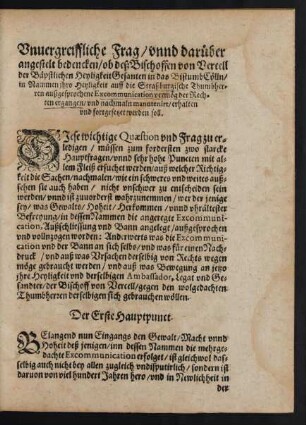 Vnuergreiffliche Frag / vnnd darüber
angestelt bedencken / ob deß Bischoffen von Vercell
der Bäpstlichen Heyligkeit Gesanten in das Bistumb Cölln /
in Nammen ihro Heyligkeit auff die Straßburgische Thumbher-
ren außgesprochene Excommunication vermög der Rech-
ten ergangen / vnd nachmaln manuteniert / erhalten
vnd fortgesetzt werden soll.
DIese wichtige Quæstion vnd Frag zu er-
ledigen / müssen zum fordersten zwo starcke
Hauptfragen / vnnd sehr hohe Puncten mit al-
lem Fleiß ersuchet werden / auß welcher Richtig-
keit die Sachen / nachmalen / wie schwer vnd weits auß-
sehen sie auch haben / nicht vnschwer zu entscheiden sein
werden / vnnd ist zuuorderst wahrzunemmen / wer der jenige
sey / was Gewalts / Hoheit / Herkommen / vnnd vhralltester
Besetzung / in dessen Nammen die angeregte Excommuni-
cation, Außschliessung vnd Bann angelegt / außgesprochen
vnd vollnzogen worden: Anderwerts was die Excommuni-
cation vnd der Bann an sich selbs / vnd was für einen Nach-
druck / vnd auß was Vrsachen derselbig von Rechts wegen
möge gebraucht werden / vnd auß was Bewegung an jetzo
jhre Heyligkeit vnd derselbigen Ambassador, Legat vnd Ge-
sandter, der Bischoff von Vercell / gegen den wolgedachten
Thumbherren derselbigen sich gebrauchen wöllen.
Der Erste Hauptpunct.
BElangend nun Eingangs den Gewalt / Macht vnnd
Hoheit deß jenigen / inn dessen Nammen die mehrge-
dachte Excommunication erfolget / ist gleichwol das-
selbig auch nicht bey allen zugleich vndisputirlich / sondern ist
daruon von viel hundert Jahren hero / vnd in Newlichkeit in
der